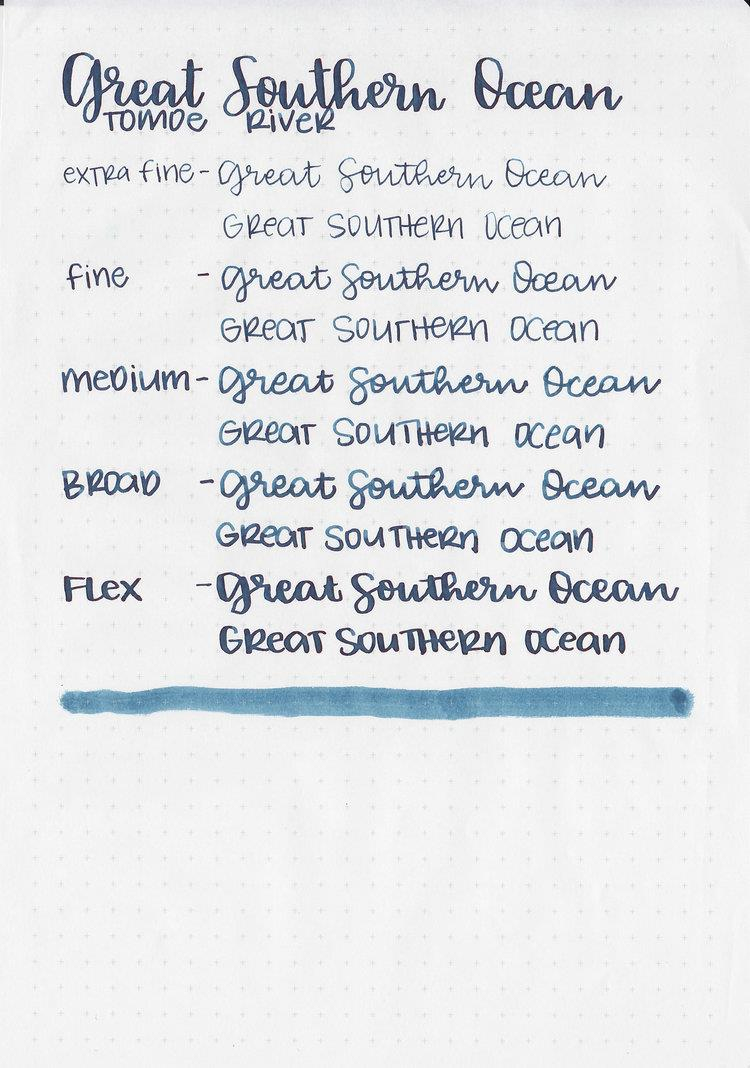 Great Southern Ocean
TOMOE RIVER
exTRa fine - Great Southern Ocean
GReaT SOUTHeRn OCean
fine - Great Southern Ocean
GReaT SOUTHeRn OCean
meDium - Great Southern Ocean
GReaT SOUTHeRn OCean
BROaD - Great Southern Ocean
GReaT SOUTHeRn OCean
FLex - Great Southern Ocean
GReaT SOUTHeRn OCean